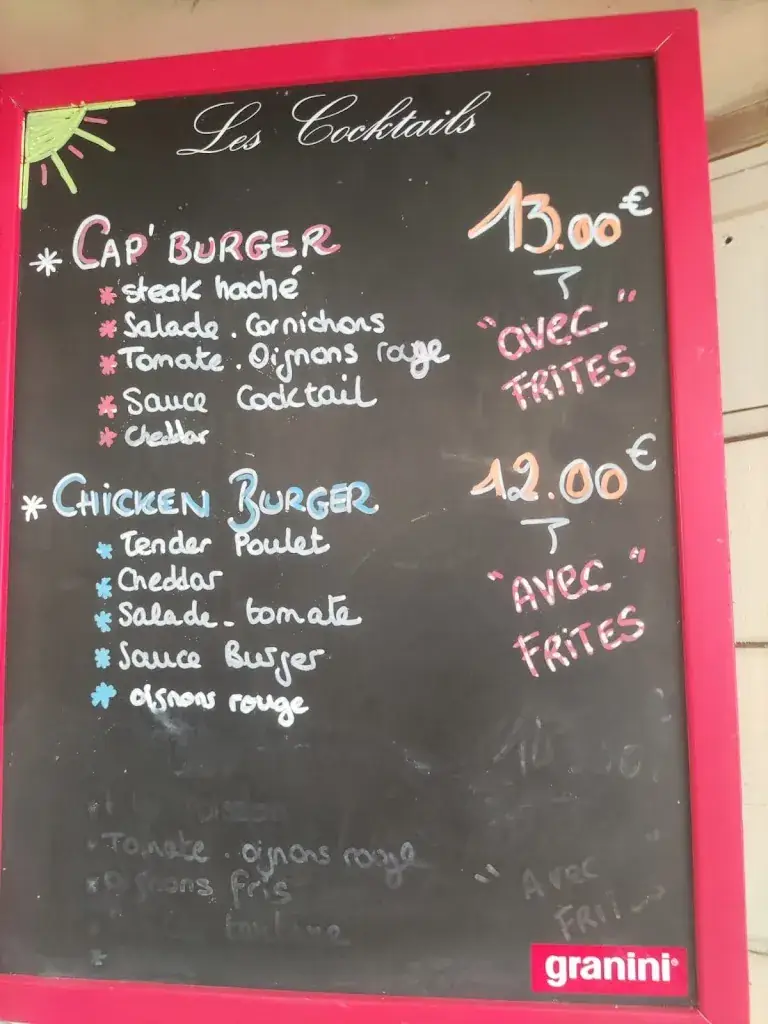 Les Cocktails
* CAP' BURGER 13.00€
* steak haché
* Salade . Cornichons
"avec"
* Tomate . Oignons rouge
FRITES
* Sauce Cocktail
* Cheddar
* CHICKEN BURGER 12.00€
* Tender Poulet
* Cheddar
"AVEC"
* Salade - tomate
FRITES
* Sauce Burger
* oignons rouge
Tomate . oignons rouge
fris
Avec
granini